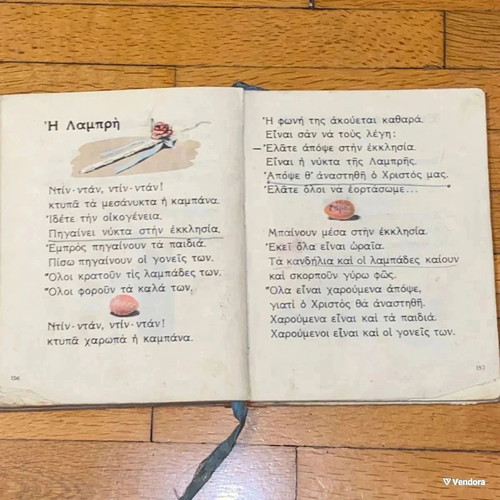 Ἡ Λαμπρὴ
Ντίν-ντάν, ντίν-ντάν!
κτυπᾶ τὰ μεσάνυκτα ἡ καμπάνα.
Ἰδέτε τὴν οἰκογένεια.
Πηγαίνει νύκτα στὴν ἐκκλησία.
Ἐμπρὸς πηγαίνουν τὰ παιδιά.
Πίσω πηγαίνουν οἱ γονεῖς των.
Ὅλοι κρατοῦν τὶς λαμπάδες των.
Ὅλοι φοροῦν τὰ καλά των.
Ντίν-ντάν, ντίν-ντάν!
κτυπᾶ χαρωπὰ ἡ καμπάνα.
156
Ἡ φωνή της ἀκούεται καθαρά.
Εἶναι σὰν νὰ τοὺς λέγη:
Ἐλᾶτε ἀπόψε στὴν ἐκκλησία.
Εἶναι ἡ νύκτα τῆς Λαμπρῆς.
Ἀπόψε θ' ἀναστηθῆ ὁ Χριστός μας.
Ἐλᾶτε ὅλοι νὰ ἑορτάσωμε...
Μπαίνουν μέσα στὴν ἐκκλησία.
Ἐκεῖ ὅλα εἶναι ὡραῖα.
Τὰ κανδήλια καὶ οἱ λαμπάδες καίουν
καὶ σκορποῦν γύρω φῶς.
Ὅλα εἶναι χαρούμενα ἀπόψε,
γιατὶ ὁ Χριστὸς θὰ ἀναστηθῆ.
Χαρούμενα εἶναι καὶ τὰ παιδιά.
Χαρούμενοι εἶναι καὶ οἱ γονεῖς των.
157
Vendora